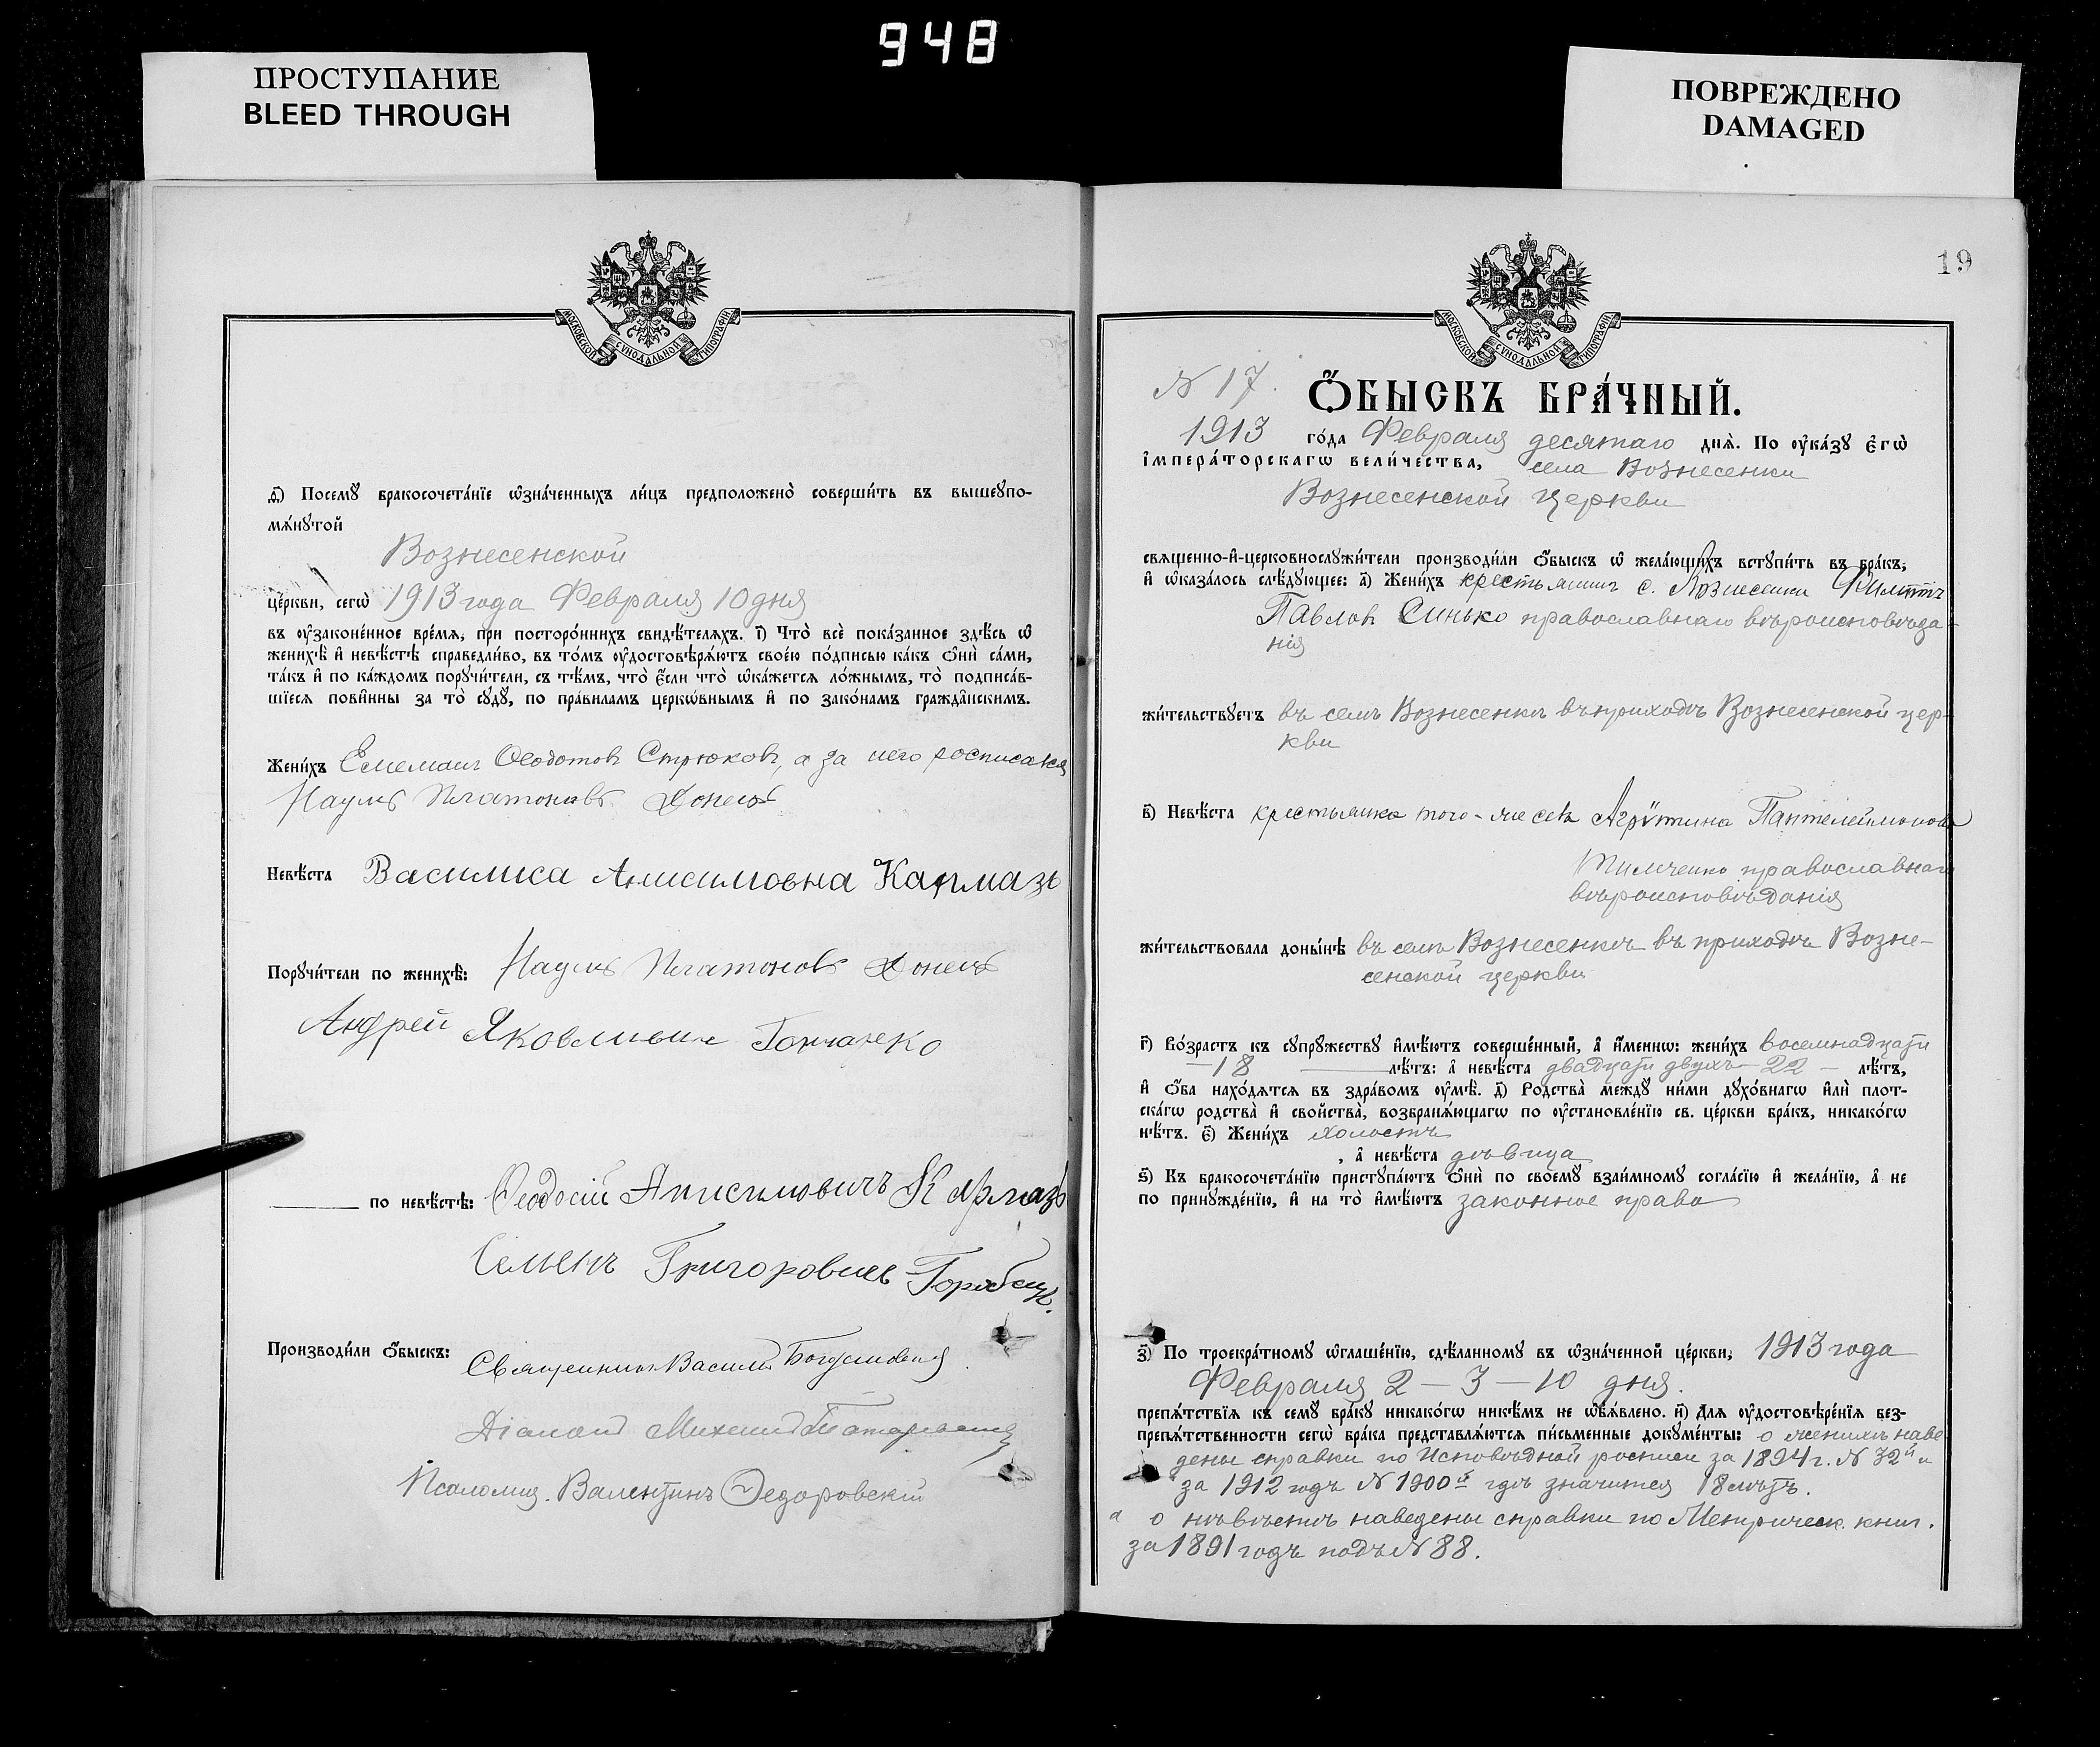 948
ПРОСТУПАНИЕ
BLEED THROUGH
ПОВРЕЖДЕНО
DAMAGED
МОСКОВСКОЙ СѴНОДАЛЬНОЙ ТИПОГРАФІИ
д҃) Посемꙋ̀ бракосочета́нїе ѡ҆зна́ченныхъ ли́цъ предположено̀ соверши́ть въ вышеꙋпо-
мѧ́нꙋтой
Вознесенской
це́ркви, сегѡ̀ 1913 года Февраля 10 дня
въ ᲂу҆зако́ненное вре́мѧ, при посторо́ннихъ свидѣ́телѧхъ. і҃) Что̀ всѐ пока́занное здѣ́сь ѡ҆
женихѣ̀ и҆ невѣ́стѣ справедли́во, въ то́мъ ᲂу҆достовѣрѧ́ютъ свое́ю по́дписью ка́къ ѻ҆нѝ са́ми,
та́къ и҆ по ка́ждомъ порꙋчи́тели, съ тѣ́мъ, что̀ є҆́сли что̀ ѡ҆ка́жетсѧ ло́жнымъ, то̀ подписа́в-
шїесѧ пови́нны за то̀ сꙋдꙋ̀, по пра́виламъ церко́внымъ и҆ по зако́намъ гражда́нскимъ.
Жени́хъ Емельянъ Ѳеодотовъ Стрюковъ, а за него росписался
Наумъ Платоновъ Донецъ
Невѣ́ста Василиса Анисимовна Кармазь
Порꙋчи́тели по женихѣ̀: Наумъ Платоновъ Донецъ
Андрей Яковливичъ
по невѣ́стѣ: Ѳеодосій Анисимовичъ Кармазь
Семенъ Григоровичъ
Производи́ли ѻ҆́быскъ: Священникъ Василій
Діаконъ Михаилъ
Псаломщ. Валентинъ Ѳедоровскій
19
МОСКОВСКОЙ СѴНОДАЛЬНОЙ ТИПОГРАФІИ
N 17.
Ѻ҆́БЫСКЪ БРА́ЧНЫЙ.
1913 го́да Февраля десятаго днѧ̀. По ᲂу҆ка́зꙋ є҆гѡ̀
і҆мпера́торскагѡ вели́чества, села Вознесенки
Вознесенской церкви
свѧще́нно-и҆-церковнослꙋжи́тели производи́ли ѻ҆́быскъ ѡ҆ жела́ющихъ встꙋпи́ть въ бра́къ,
и҆ ѡ҆каза́лось слѣ́дꙋющее: а҃) Жени́хъ крестьянинъ с. Вознесенки Филиппъ
Павловъ Синько православнаго вѣроисповѣда-
нія
жи́тельствꙋетъ въ селѣ Вознесенкѣ въ приходѣ Вознесенской цер-
кви
в҃) Невѣ́ста крестьянка того-же села Агрипина Пантелеймонова
Тимченко православнаго
вѣроисповѣданія
жи́тельствовала доны́нѣ въ селѣ Вознесенкѣ въ приходѣ Возне-
сенской церкви
г҃) Во́зрастъ къ сꙋпрꙋ́жествꙋ и҆мѣ́ютъ соверше́нный, а҆ и҆́меннѡ: жени́хъ восемнадцати
—18— лѣ́тъ: а҆ невѣ́ста двадцати двухъ—22— лѣ́тъ,
и҆ ѻ҆́ба нахо́дѧтсѧ въ здра́вомъ ᲂу҆мѣ̀. д҃) Родства̀ междꙋ̀ ни́ми дꙋхо́внагѡ и҆лѝ плот-
ска́гѡ родства̀ и҆ сво́йства, возбранѧ́ющагѡ по ᲂу҆становле́нїю св. це́ркви бра́къ, никако́гѡ
нѣ́тъ. є҃) Жени́хъ холостъ
, а҆ невѣ́ста дѣвица
ѕ҃) Къ бракосочета́нїю пристꙋпа́ютъ ѻ҆нѝ по своемꙋ̀ взаи́мномꙋ согла́сїю и҆ жела́нїю, а҆ не
по принꙋжде́нїю, и҆ на то̀ и҆мѣ́ютъ законное право
з҃) По троекра́тномꙋ ѡ҆глаше́нїю, сдѣ́ланномꙋ въ ѡ҆зна́ченной це́ркви, 1913 года
Февраля 2—3—10 дня.
препѧ́тствїѧ къ семꙋ̀ бра́кꙋ никако́гѡ никѣ́мъ не ѡ҆бъѧ́влено. и҃) Длѧ ᲂу҆достовѣре́нїѧ без-
препѧ́тственности сегѡ̀ бра́ка представлѧ́ютсѧ пи́сьменные докꙋме́нты: о женихѣ наве
дены справки по Исповѣдной росписи за 1894 г. N 32й и
за 1912 годъ N 1900й гдѣ значится 18 лѣтъ.
а о невѣстѣ наведены справки по Метрическ. книг.
за 1891 годъ подъ N 88.